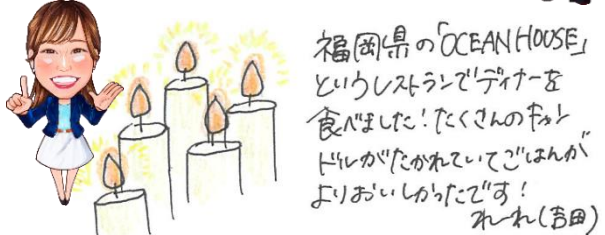 福岡県の「OCEAN HOUSE」
というレストランでディナーを
食べました!たくさんのキャン
ドルがたかれていてごはんが
よりおいしかったです!
れーれ(吉田)